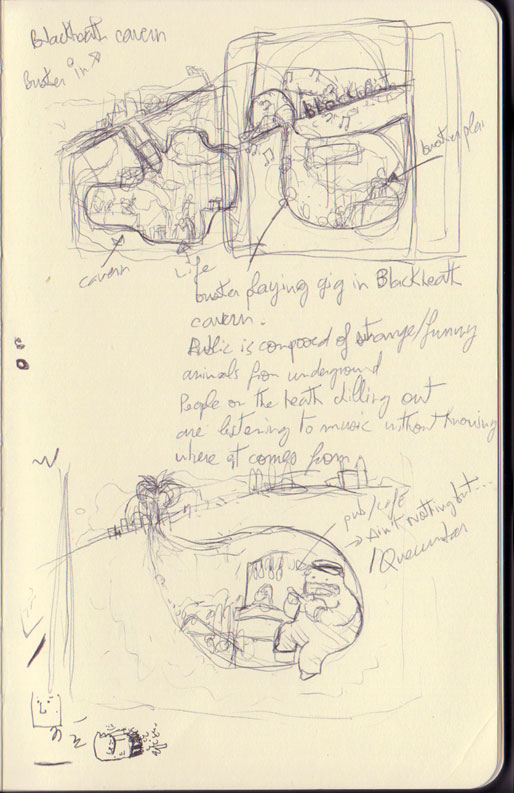 Blackheath cavern
buster in
Blackheath
buster pla
cavern
Life
buster playing gig in Blackheath
cavern.
Public is composed of strange/funny
animals from underground
People on the heath chilling out
are listening to music without knowing
where it comes from
pub/café
Ain't nothing but...